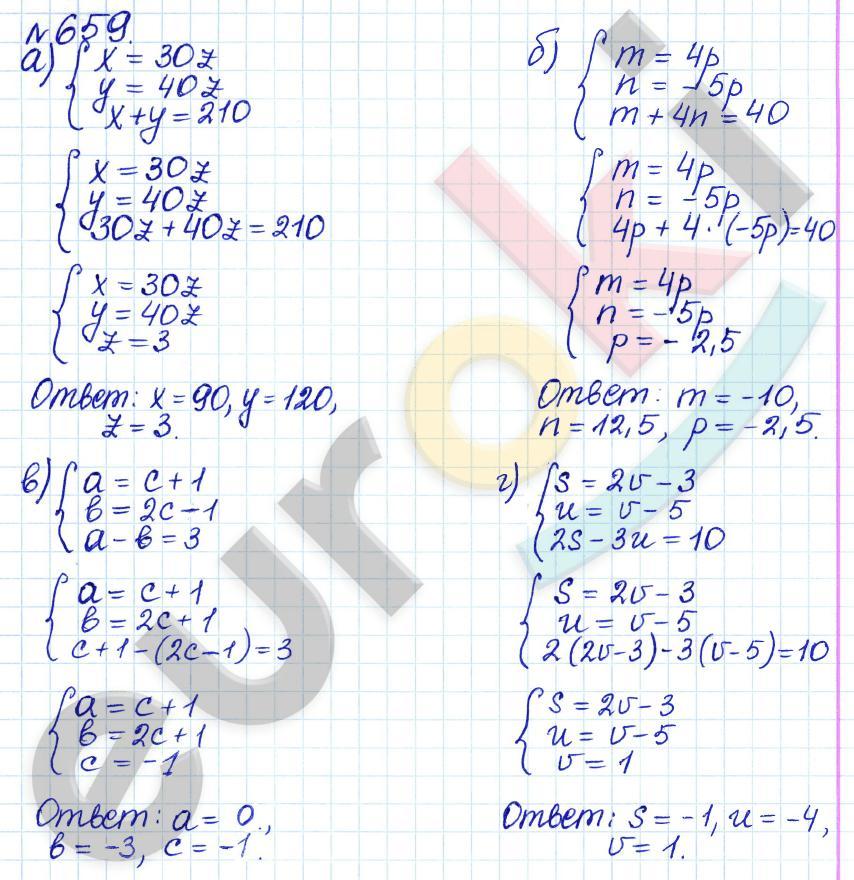 №659.
а) { x = 30z
y = 40z
x+y = 210
{ x = 30z
y = 40z
30z + 40z = 210
{ x = 30z
y = 40z
z = 3
Ответ: x = 90, y = 120,
z = 3.
б) { m = 4p
n = -5p
m + 4n = 40
{ m = 4p
n = -5p
4p + 4·(-5p) = 40
{ m = 4p
n = -5p
p = -2,5
Ответ: m = -10,
n = 12,5, p = -2,5.
в) { a = c + 1
в = 2c - 1
a - в = 3
{ a = c + 1
в = 2c + 1
c + 1 - (2c - 1) = 3
{ a = c + 1
в = 2c + 1
c = -1
Ответ: a = 0,
в = -3, c = -1.
г) { s = 2v - 3
u = v - 5
2s - 3u = 10
{ s = 2v - 3
u = v - 5
2(2v-3) - 3(v-5) = 10
{ s = 2v - 3
u = v - 5
v = 1
Ответ: s = -1, u = -4,
v = 1.
euroki